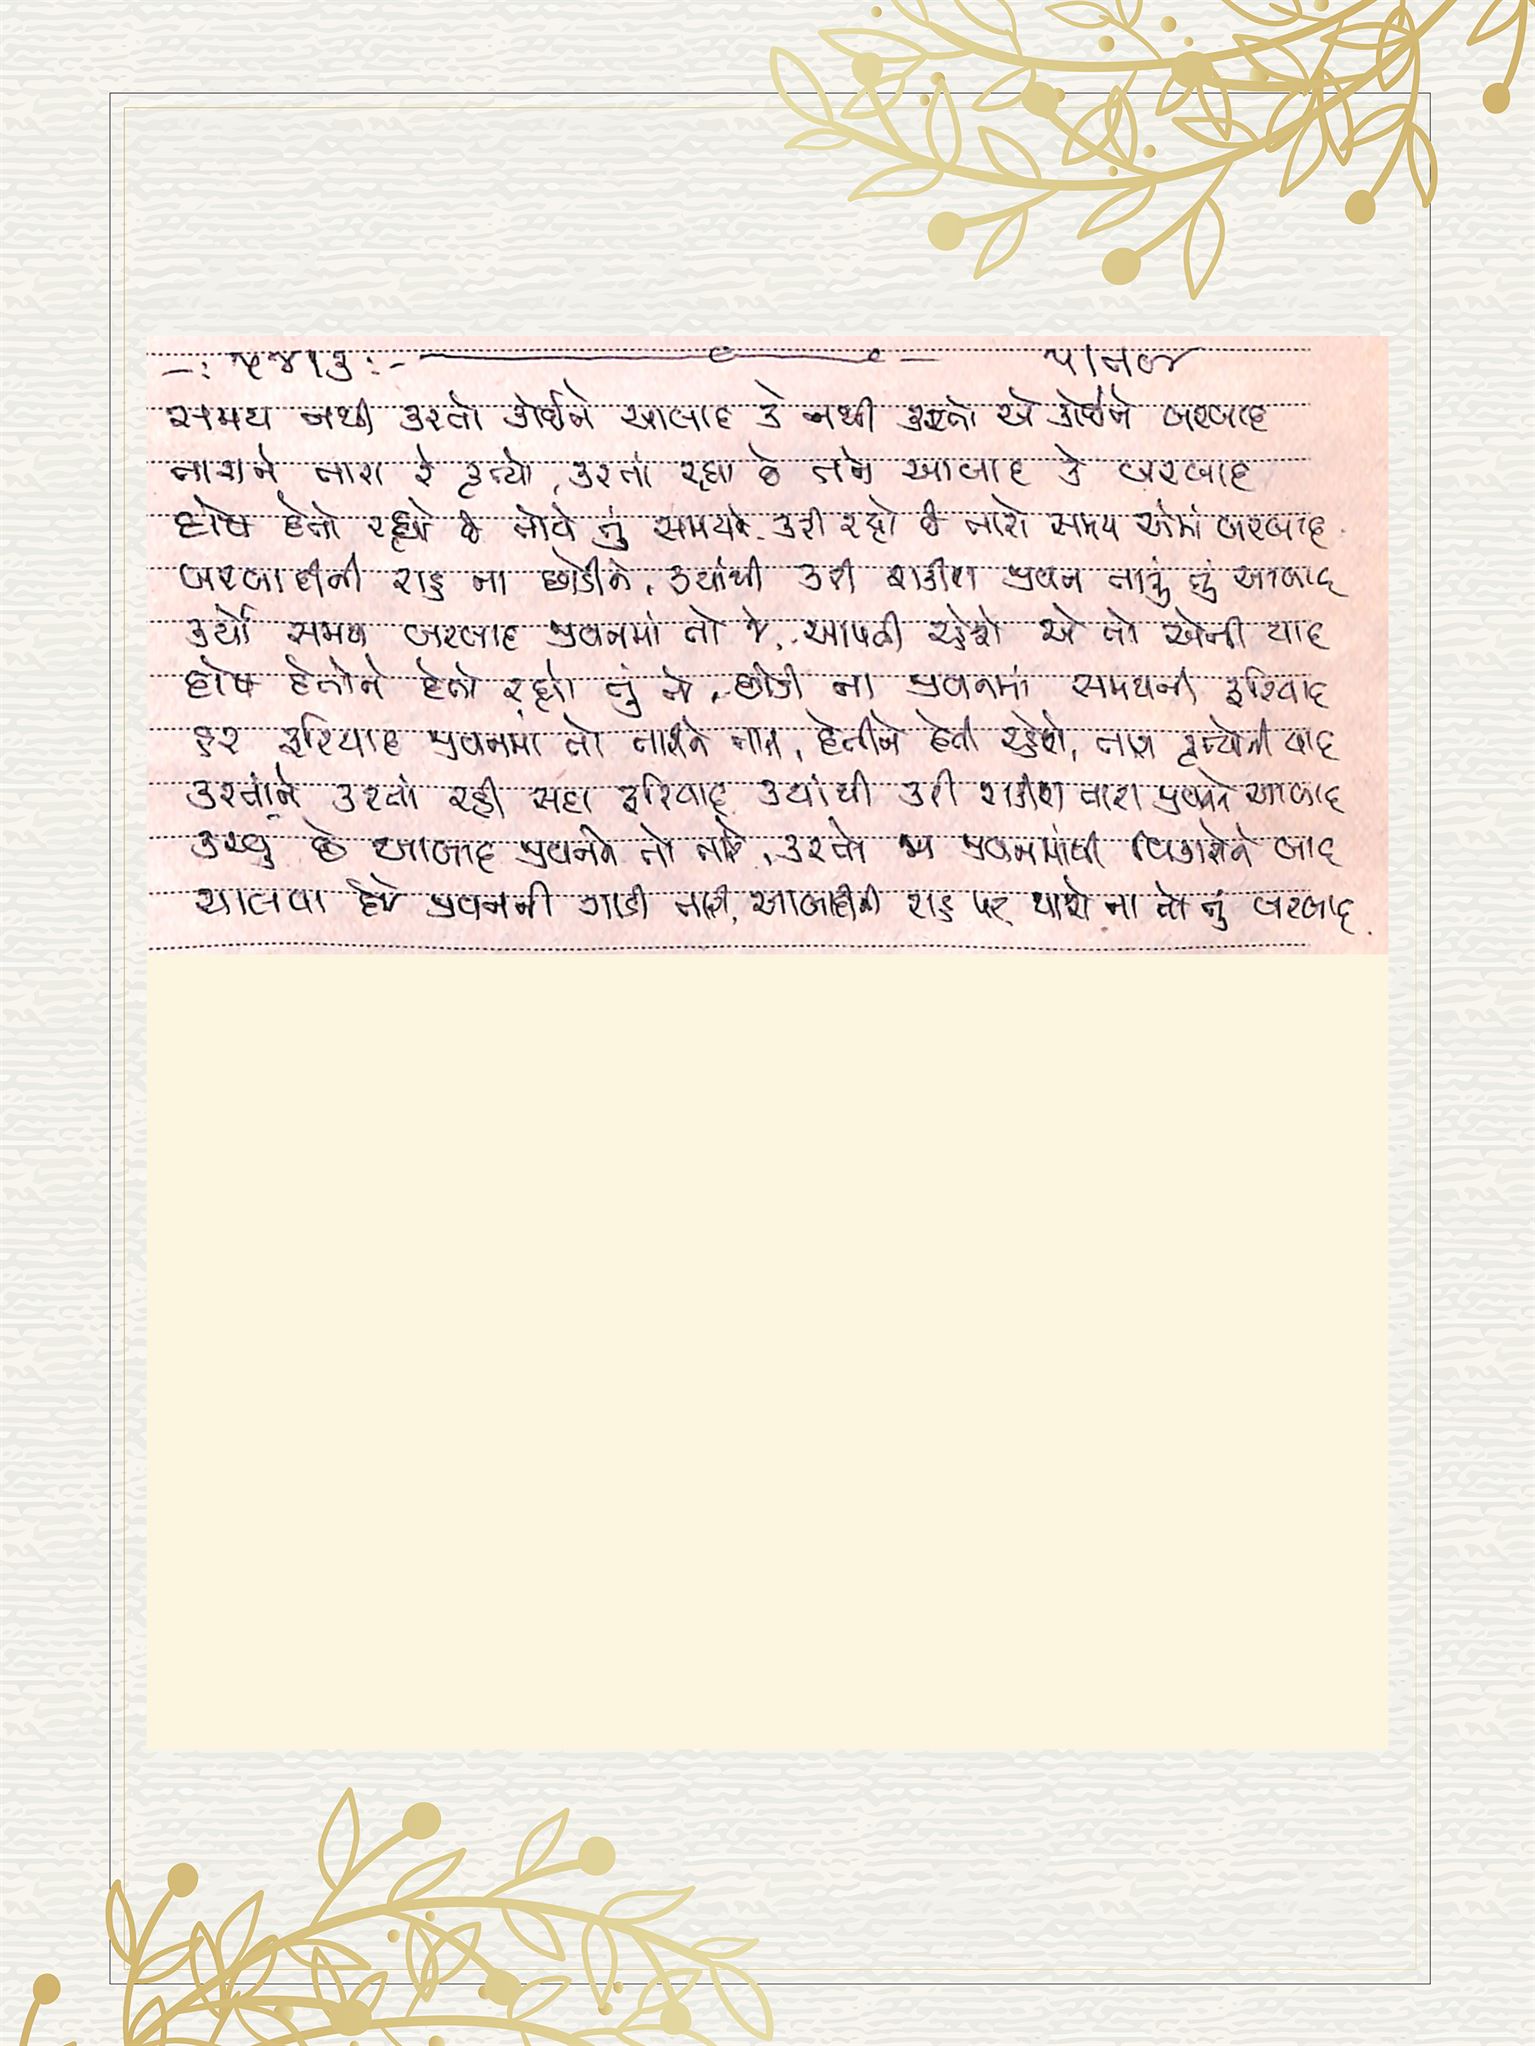 સમય નથી કરતો કોઈને આબાદ કે નથી કરતો એ કોઈને બરબાદ
તારાને તારા રે કૃત્યો, કરતાં રહ્યા છે તને આબાદ કે બરબાદ
દોષ દેતો રહ્યો છે તોયે તું સમયને કરી રહ્યો છે તારો સમય એમાં બરબાદ
બરબાદીની રાહ ના છોડીને, ક્યાંથી કરી શકીશ જીવન તારું તું આબાદ
કર્યો સમય બરબાદ જીવનમાં તો જે, આપતી રહેશે એ તો એની યાદ
દોષ દેતોને દેતો રહ્યો તું તો, છોડી ના જીવનમાં સમયની ફરિયાદ
હર ફરિયાદ જીવનમાં તો તારીને તારી, દેતીને દેતી રહેશે, તારા કૃત્યોની યાદ
કરતાંને કરતાં રહી સદા ફરિયાદ ક્યાંથી કરી શકીશ તારા જીવનને આબાદ
કરવું છે આબાદ જીવનને તો તારે, કરજે જીવનમાંથી વિકારોને બાદ
ચાલવા દેજે જીવનની ગાડી તારી, આબાદીની રાહ પર થાશે ના તો તું બરબાદ.